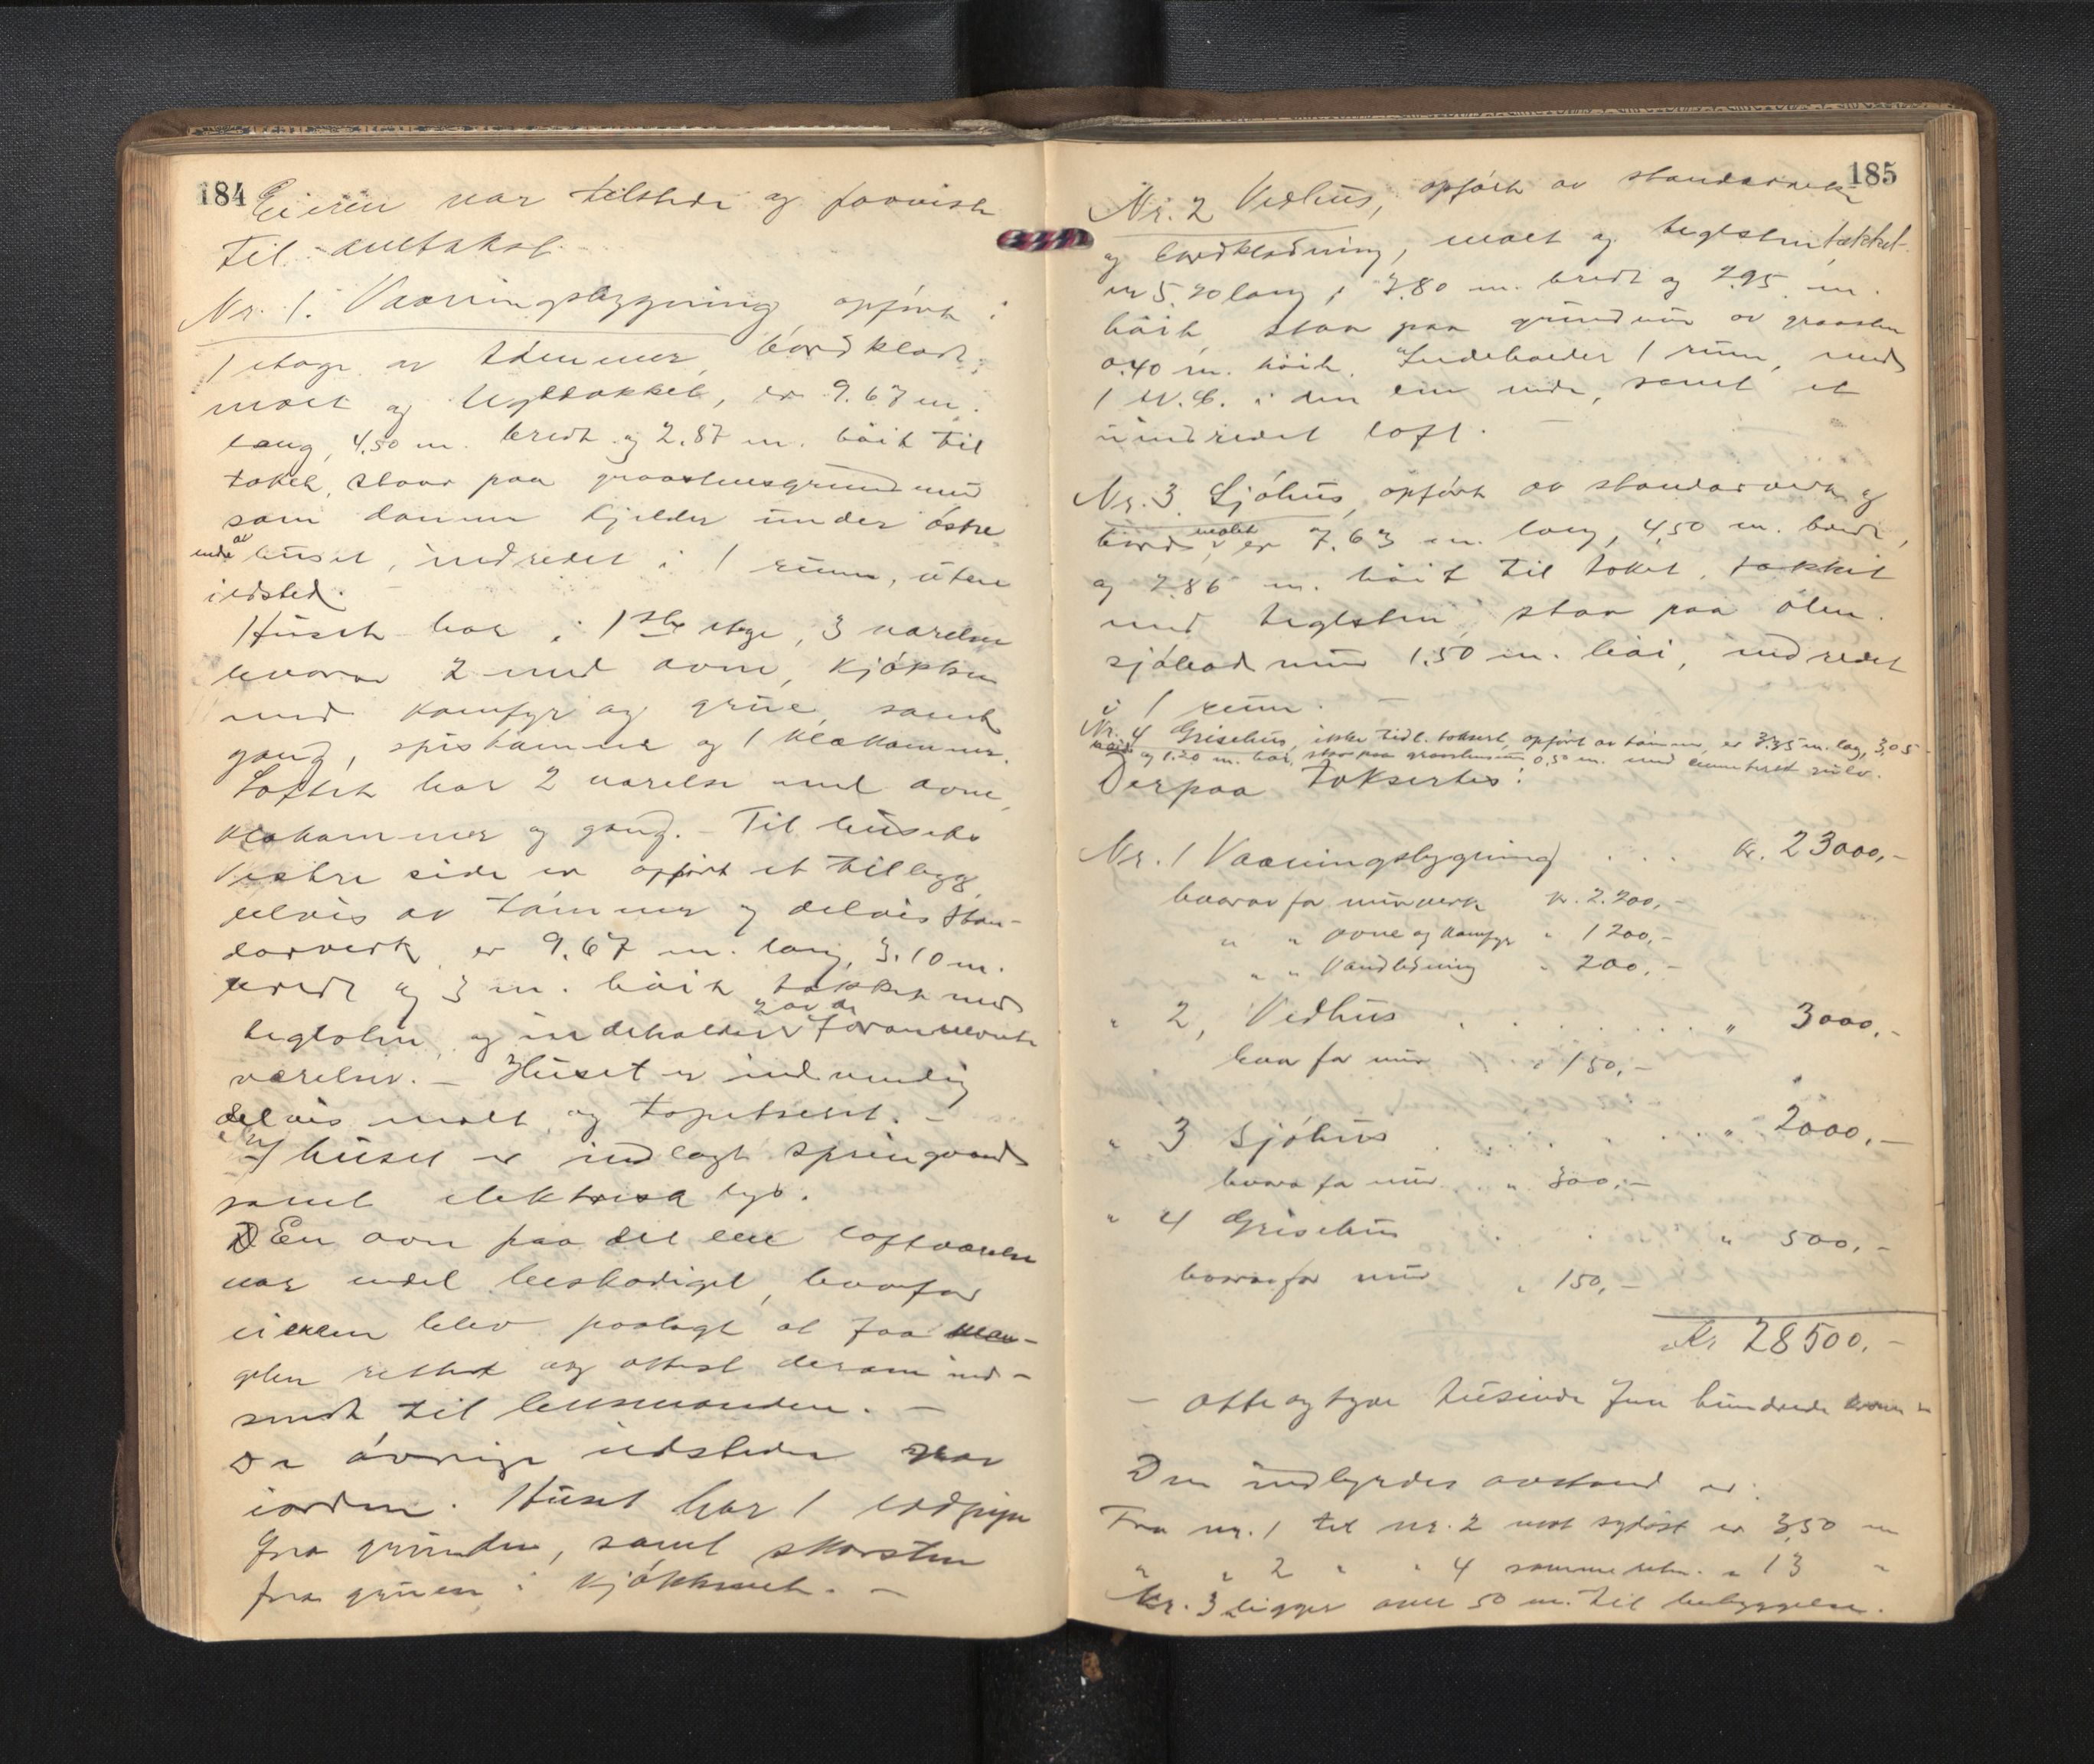 184
Eieren var tilstede og paaviste
til - avtakst.
Nr. 1. Vaaningsbygning, opført i
1 etage av tømmer, bordklædt,
malt og tegltækket, er 9.67 m.
lang, 4.50 m. bredt og 2.87 m. høit til
taket, staar paa graastensgrundmur
som danner kjelder under østre
ende av huset, indredet i 1 rum, uten
ildsted.
Huset har i 1ste etage, 3 værelser
hvorav 2 med ovne, kjøkken
med komfyr og grue, samt
gang, spiskammer og 1 klækammer.
Loftet har 2 værelser med ovne,
klækammer og gang. - Til husets
Vestre side er opført et tillegg,
delvis av tømmer og delvis stan-
darverk, er 9.67 m. lang, 3.10 m.
bredt og 3 m. høit tækket med
teglsten, og indeholder 2 av de forannævnte
værelser. - Huset er indvendig
delvis malt og tapetsert. -
I huset er indlagt springvand
samt elektrisk lys.
En ovn paa det ene loftværelse
var endel beskadiget, hvorfor
eieren blev paalagt at faa man-
gelen rettet og attest derom ind-
sendt til lensmanden. -
De øvrige ildsteder var
iorden. Huset har 1 ildpipe
fra grunden, samt skorsten
fra gruen i kjøkkenet. -
185
Nr. 2 Vedhus, opført av standarverk
og bordklædning, malt og teglstentækket
er 5.20 lang, 3.80 m. bredt og 2.95 m.
høit, staar paa grundmur av graasten
0.40 m. høit. Indeholder 1 rum, med
1 W.C. i den ene ende, samt et
uindredet loft.
Nr. 3. Sjøhus, opført av standarverk og
bord, malt og er 7.63 m. lang, 4.50 m. bredt,
og 2.86 m. høit til taket, tækket
med teglsten, staar paa
sjøbadmur 1.50 m. høi, indredet
i 1 rum.
Nr. 4 Grisehus, ikke tidl. taksert, opført av tømmer, er 3.35 m. lang, 3.05
og 1.20 m. høi, staar paa graastensmur 0.50 m. med cementeret gulv.
Derpaa taksertes:
Nr. 1 Vaaningsbygning . . . kr. 23000,-
hvorav for murverk kr. 2.200,-
" " ovne og komfyr " 1200,-
" " Vandledning " 200,-
" 2, Vedhus . . . . . . . " 3000,-
hvorav for mur " 150,-
" 3 Sjøhus . . . . . . . " 2000,-
hvorav for mur . . " 300,-
" 4 Grisehus . . " 500,-
hvorav for mur " 150,-
Kr. 28500,-
- otte og tyve tusinde fem hundrede kroner -
Den indbyrdes avstand er:
Fra nr. 1 til nr. 2 mot sydøst er 3,50 m
" " 2 " " 4 samme retn. " 13 "
Nr. 3 ligger over 50 m. til bebyggelse.